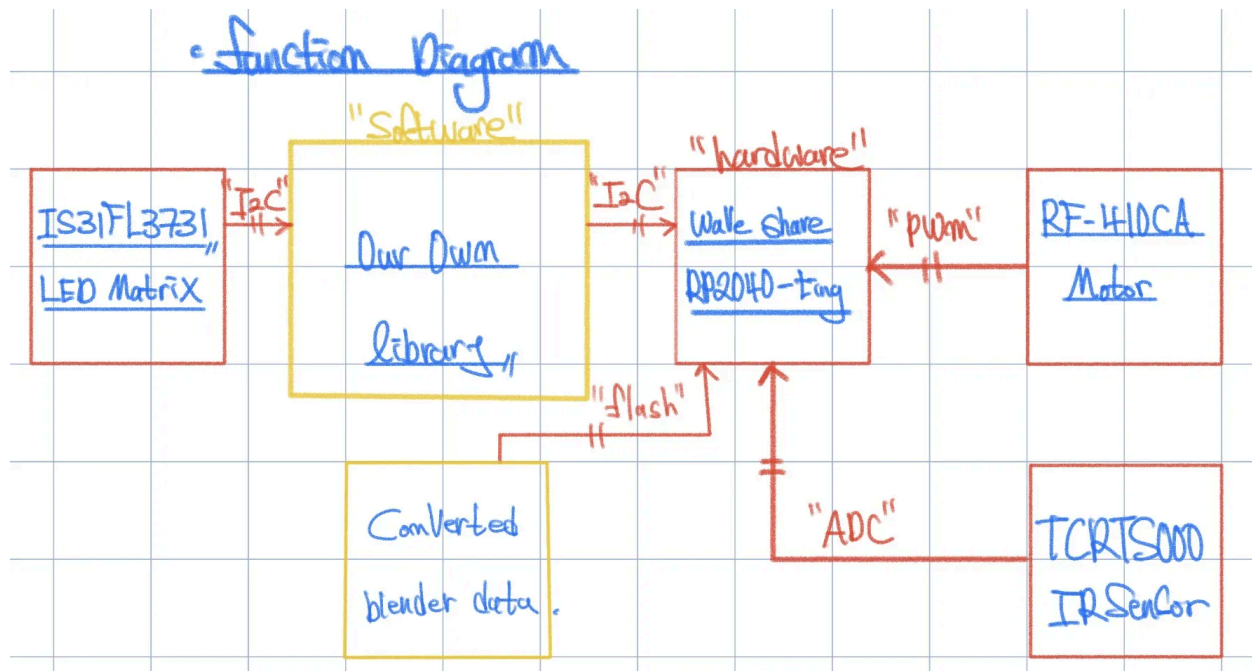 · function Diagram
"Software"
"hardware"
IS31FL3731
LED MatriX
"I2C"
Our Own
library
"I2C"
Wave share
RP2040-ting
"PWm"
RF-410CA
Motor
"flash"
Converted
blender data.
"ADC"
TCRT5000
IR Sensor